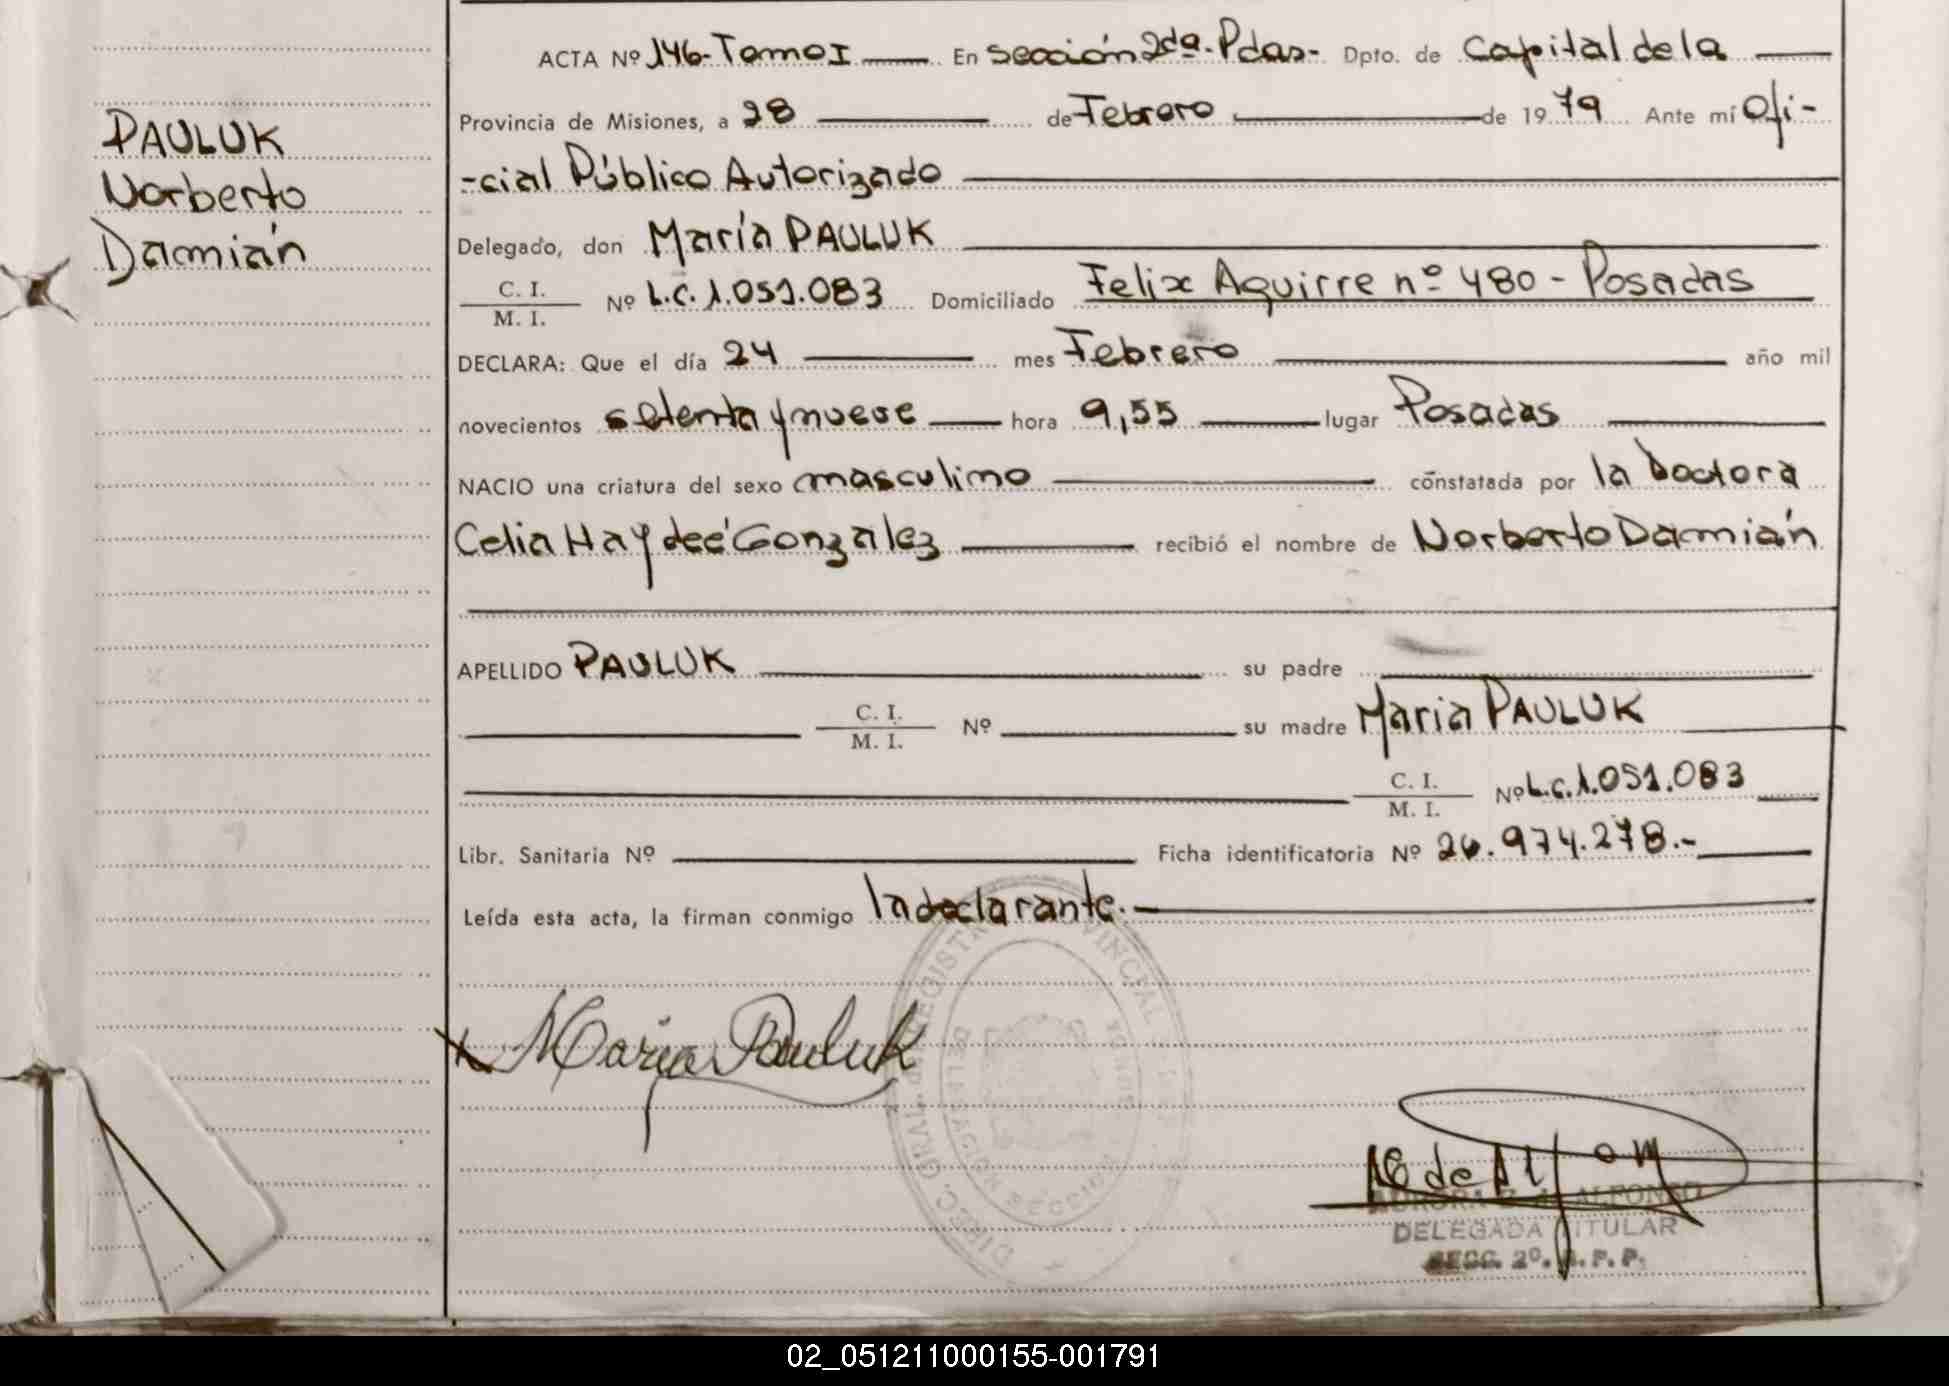 PAULUK
Norberto
Damián
ACTA Nº 146-Tomo I En sección 2da.-Pdas- Dpto. de Capital de la
Provincia de Misiones, a 28 de Febrero de 1979 Ante mí Ofi-
-cial Público Autorizado
Delegado, don María PAULUK
C. I.
M. I. Nº L.C.1.051.083 Domiciliado Felix Aguirre nº 480 - Posadas
DECLARA: Que el día 24 mes Febrero año mil
novecientos setenta y nueve hora 9,55 lugar Posadas
NACIO una criatura del sexo masculino cōnstatada por la Doctora
Celia Haydeé Gonzalez recibió el nombre de Norberto Damián
APELLIDO PAULUK su padre
C. I.
M. I. Nº su madre Maria PAULUK
C. I.
M. I. Nº L.C.1.051.083
Libr. Sanitaria Nº Ficha identificatoria Nº 26.974.278.-
Leída esta acta, la firman conmigo la declarante.-
Maria Pauluk
DIREC. GRAL. REGISTRO PROVINCIAL
DELEGACION SECCION
ALFONSO
DELEGADA TITULAR
SECC. 2º. R. P. P.
02_051211000155-001791